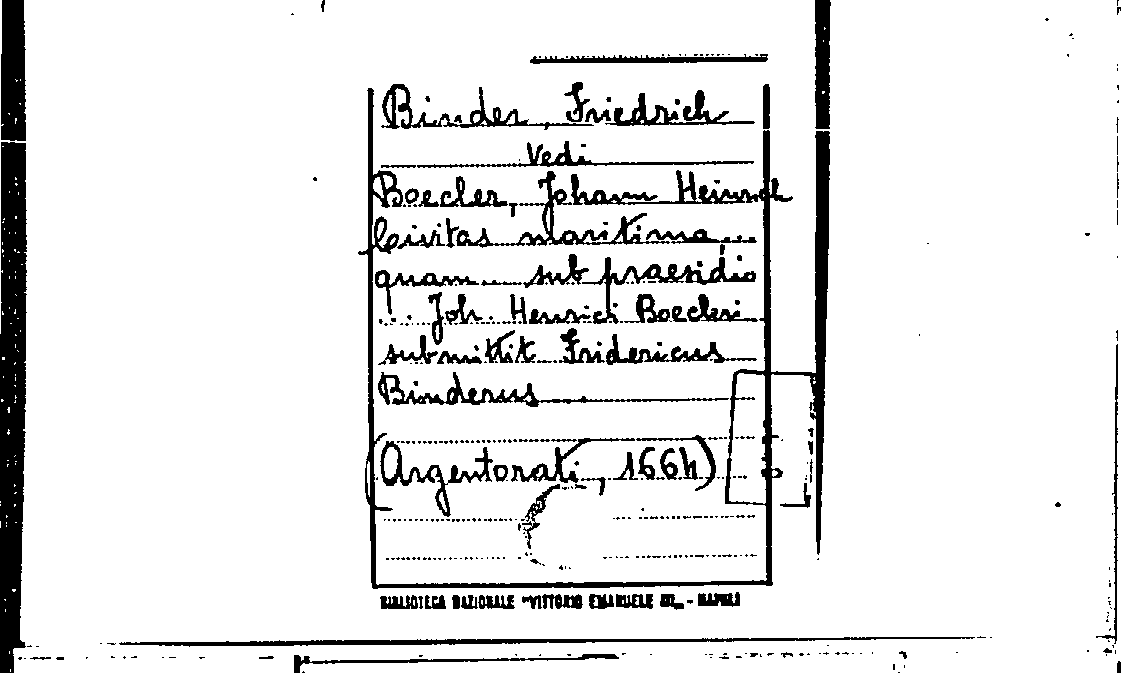 Binder, Friedrich
Vedi
Boecler, Johann Heinrich
Civitas maritima...
quam... sub praesidio
... Joh. Henrici Boecleri
submittit Fridericus
Binderus...
(Argentorati, 1664)
BIBLIOTECA NAZIONALE "VITTORIO EMANUELE III„ - NAPOLI